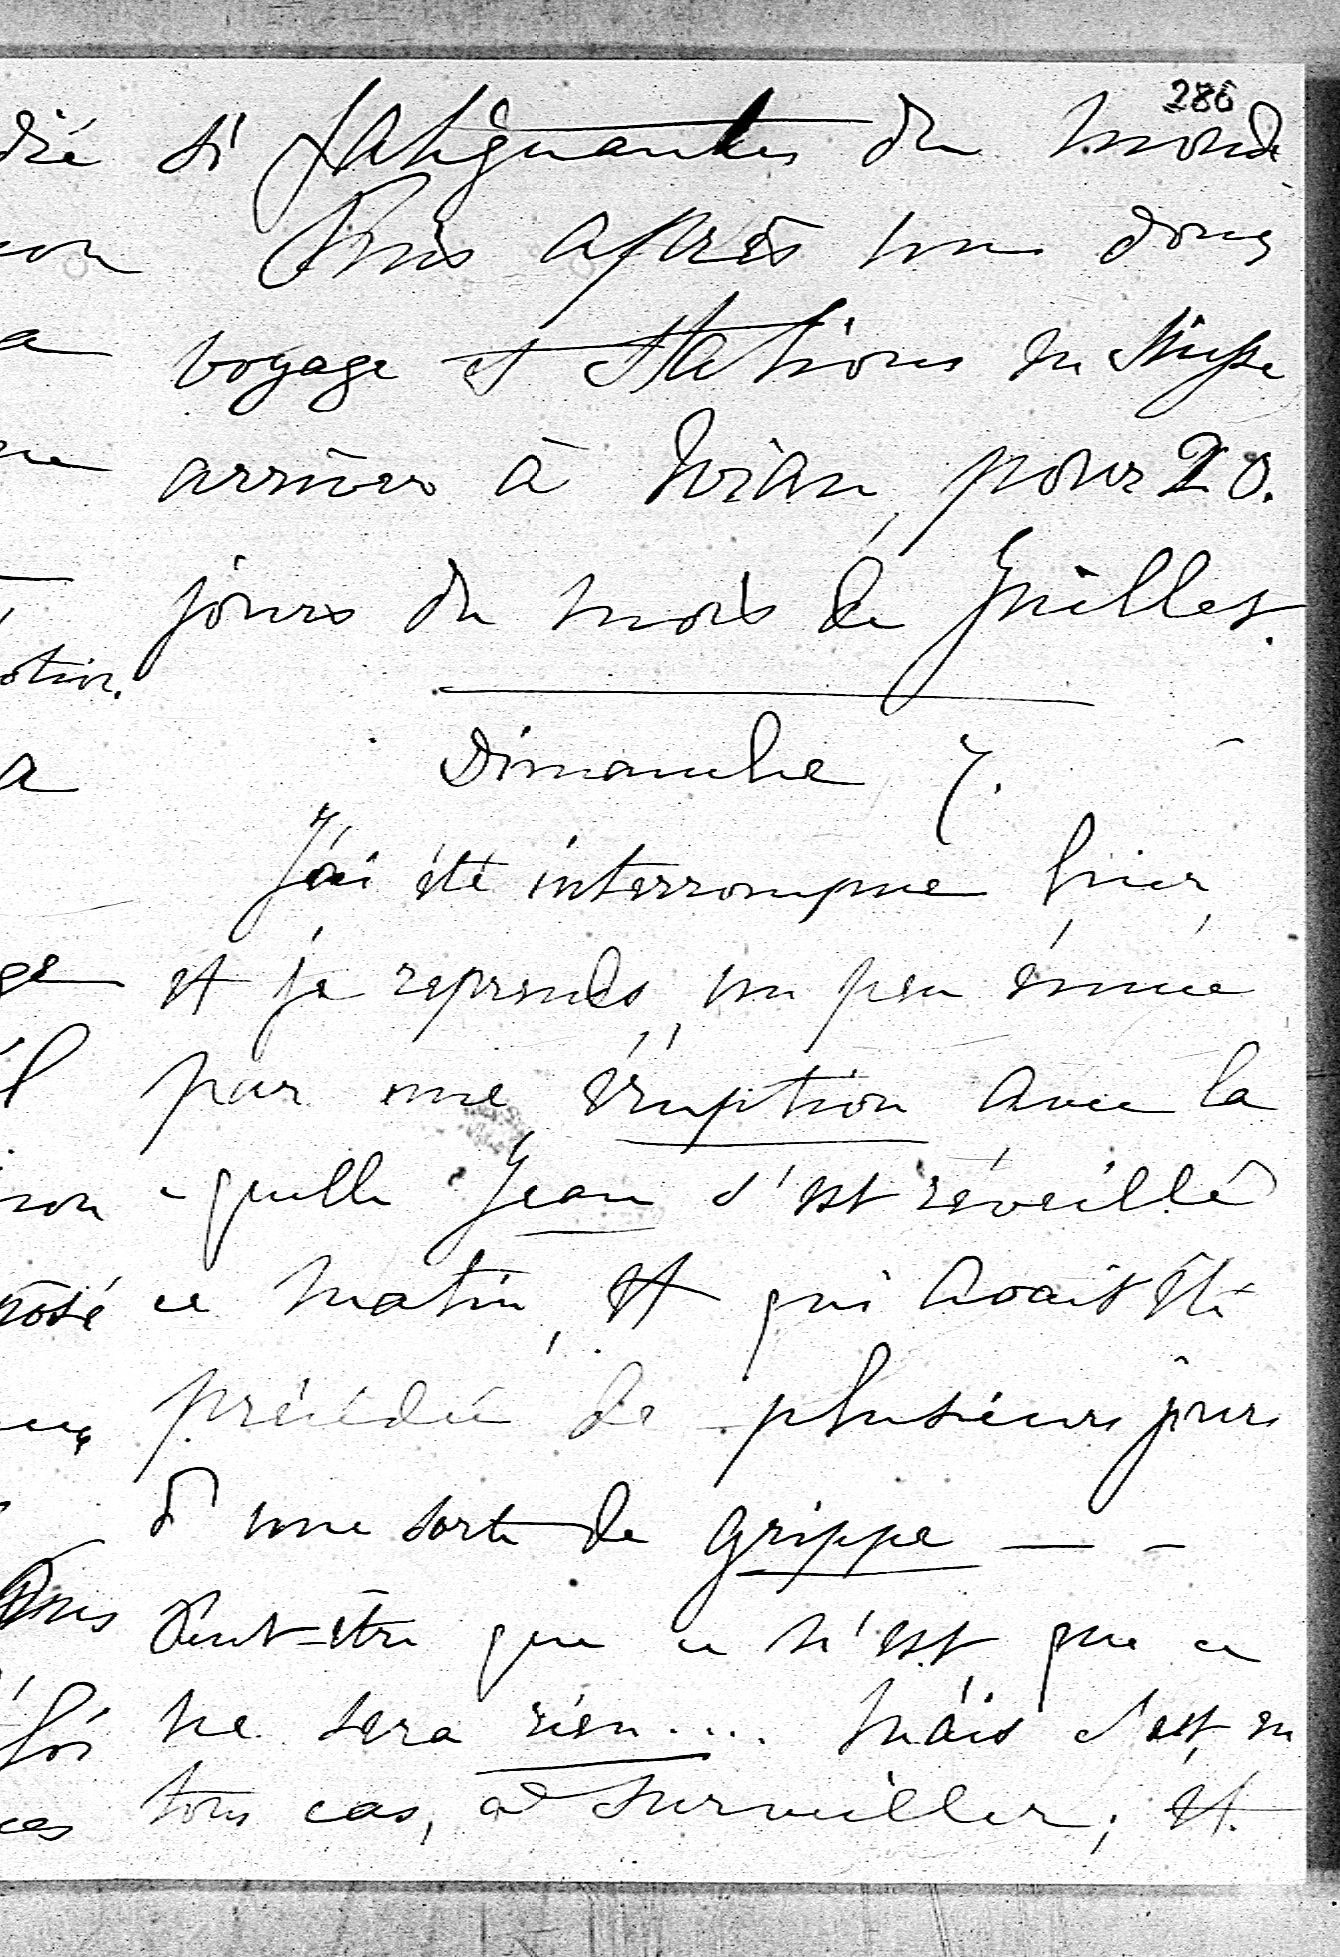 286
si fatigantes du monde
Puis après un doux
voyage et stations en Suisse
arriver à Evian, pour 20.
jours du mois de Juillet.
Dimanche 7.
J'ai été interrompue hier,
et je reprends, un peu émue
par une éruption avec la
quelle Jean s'est réveillé
ce matin, et qui avait été
précédée de plusieurs jours
d'une sorte de grippe — -
Peut-être que ce n'est que ce
ne sera rien... mais c'est en
tous cas, à surveiller; et